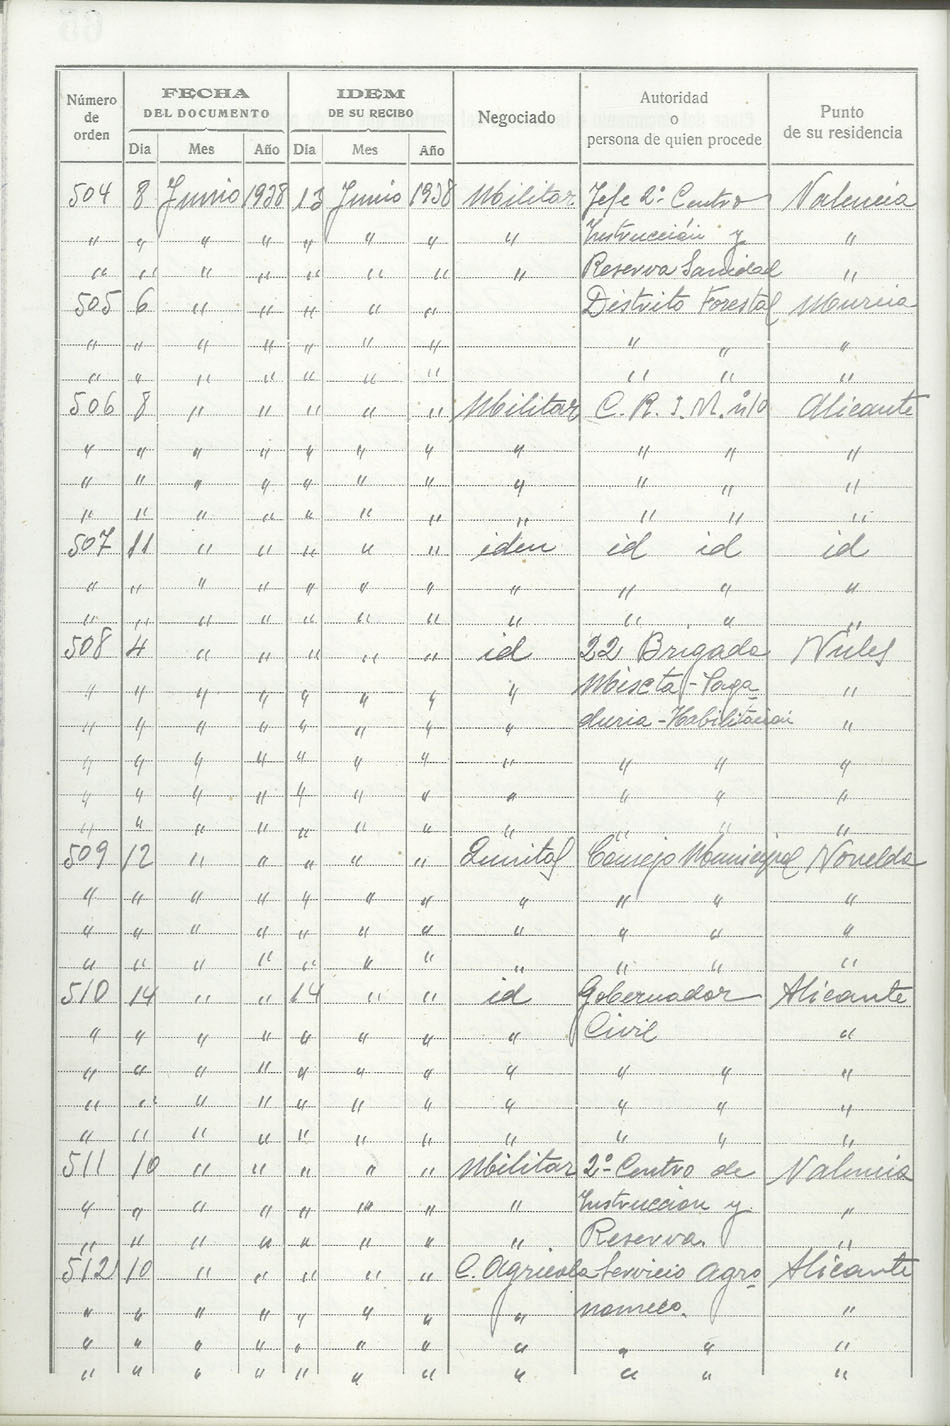 Número de orden | FECHA DEL DOCUMENTO | IDEM DE SU RECIBO | Negociado | Autoridad o persona de quien procede | Punto de su residencia
Día | Mes | Año | Día | Mes | Año
504 8 Junio 1938 13 Junio 1938 Militar Jefe 2º Centro Valencia
" " " " " " " " Instrucción y "
" " " " " " " " Reserva Sanidad "
505 6 " " " " " Distrito Forestal Murcia
" " " " " " " " " "
" " " " " " " " " "
506 8 " " " " " Militar C. R. I. M. nº 10 Alicante
" " " " " " " " " " "
" " " " " " " " " " "
" " " " " " " " " " "
507 11 " " " " " iden id id id
" " " " " " " " " " "
" " " " " " " " " " "
508 4 " " " " " id 22 Brigada Nules
" " " " " " " " Miscta - Paga- "
" " " " " " " " duria - Habilitacion "
" " " " " " " " " " "
" " " " " " " " " " "
" " " " " " " " " " "
509 12 " " " " " Quintas Consejo Municipal Novelda
" " " " " " " " " " "
" " " " " " " " " " "
" " " " " " " " " " "
510 14 " " 14 " " id Gobernador Alicante
" " " " " " " " Civil "
" " " " " " " " " " "
" " " " " " " " " " "
" " " " " " " " " " "
511 10 " " " " " Militar 2º Centro de Valencia
" " " " " " " " Instruccion y "
" " " " " " " " Reserva. "
512 10 " " " " " C. Agricola Servicio Agro- Alicante
" " " " " " " " nomico. "
" " " " " " " " " " "
" " " " " " " " " " "